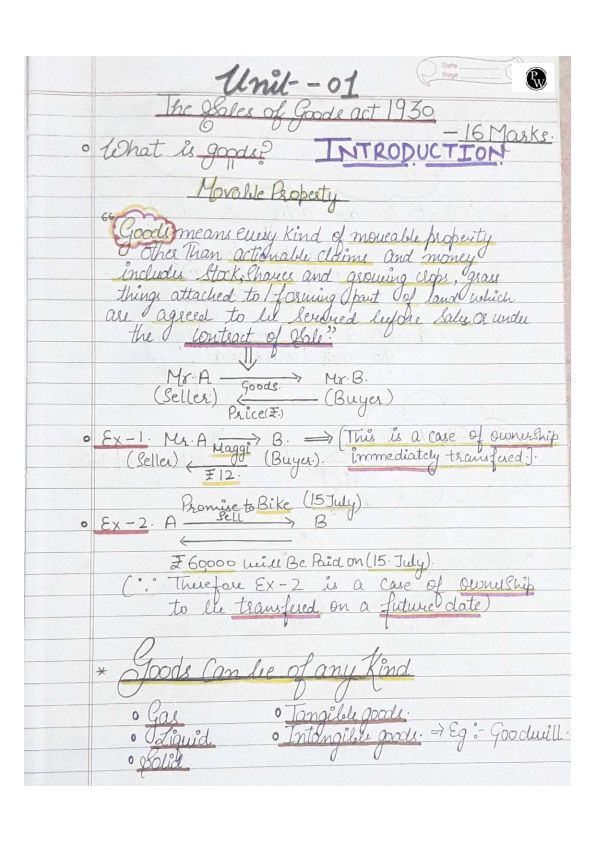 Unit - 01
Date
Page
PW
The Sales of Goods act 1930
- 16 Marks.
What is goods? INTRODUCTION
Movable Property
"Goods means every kind of moveable property
other than actionable claims and money
includes stock, shares and growing crops, grass
things attached to / forming part of land which
are agreed to be servered before sale or under
the contract of sale."
Mr. A Goods Mr. B.
(Seller) Price(₹.) (Buyer)
Ex-1. Mr. A Maggi B. ⇒ [This is a case of ownership
(Seller) ₹12. (Buyer). immediately transfered].
Promise to Bike (15 July)
Ex-2. A Sell B
₹ 60,000 will Be Paid on (15. July).
(∵ Therefore Ex-2 is a case of ownership
to be transfered on a future date)
* Goods Can be of any Kind
Gas
Liquid
Solid
Tangible goods.
Intangible goods. ⇒ Eg :- Goodwill.